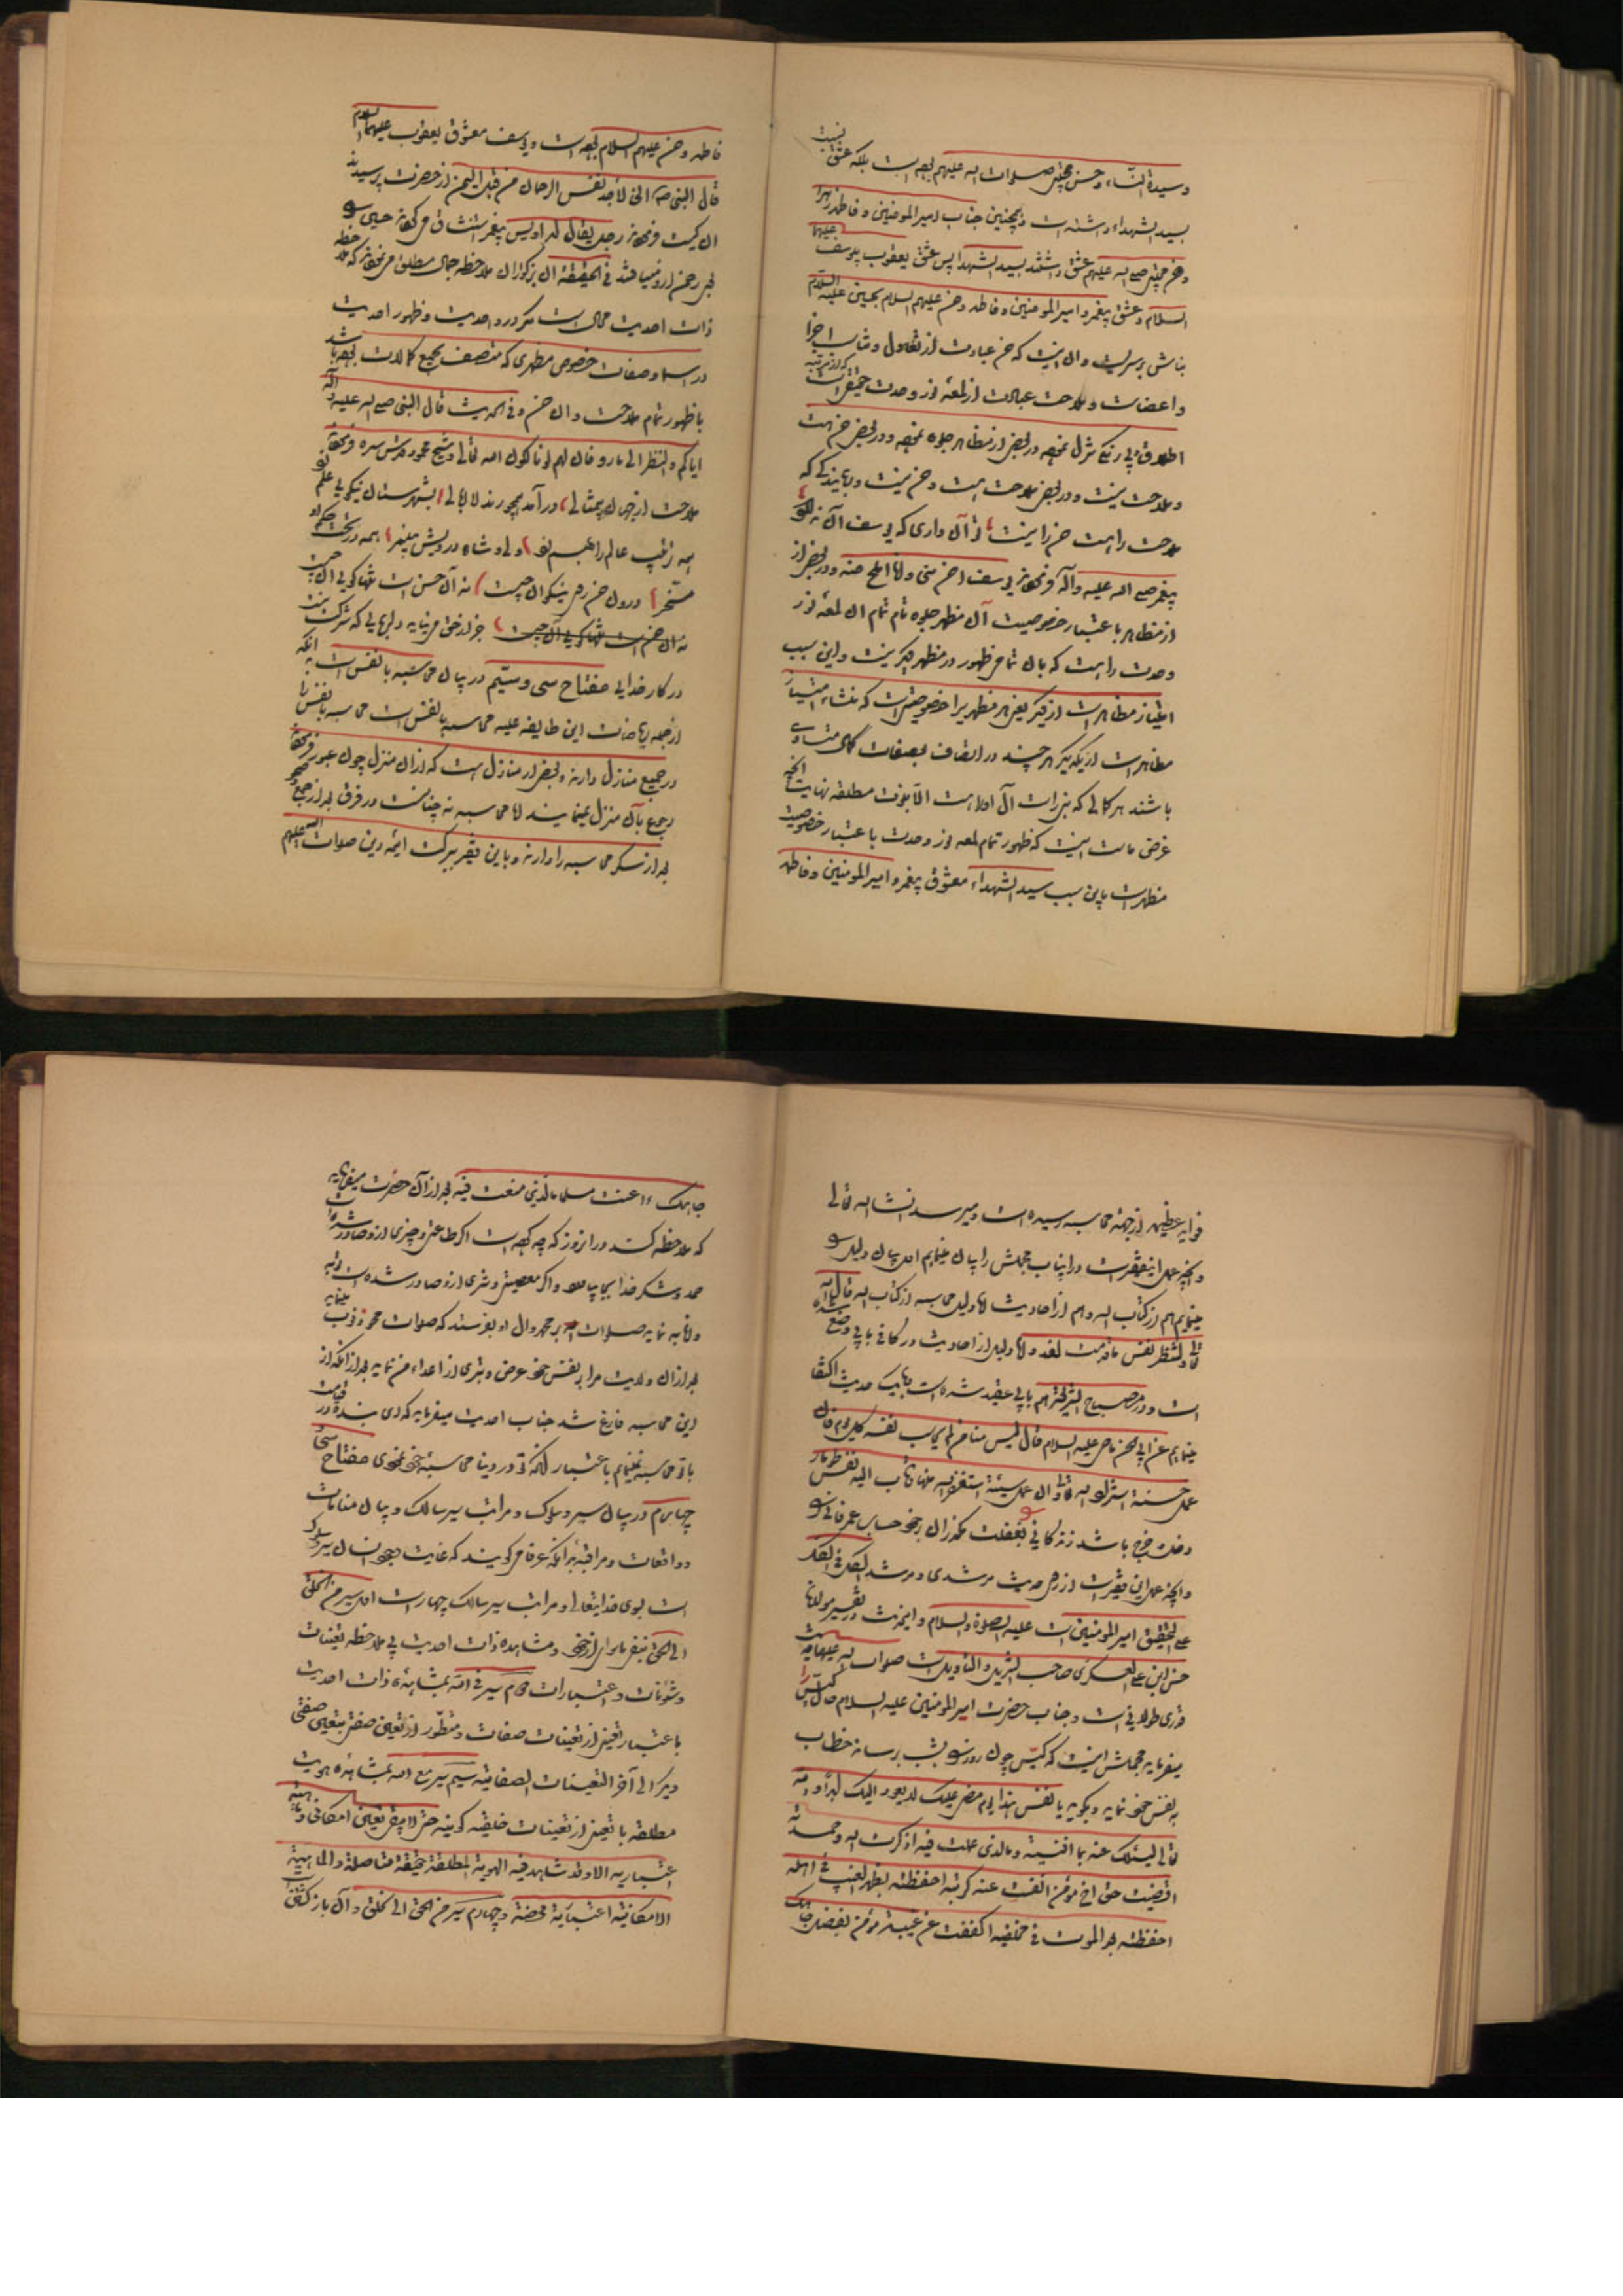 و سیدة النساء و حسن مجتبی صلوات الله علیهم بوده است بلکه عشق نیست
بسید الشهداء داشته است و همچنین جناب امیر المومنین و فاطمه زهرا
و حسن مجتبی صلی الله علیهم عشق داشتند بسید الشهدا پس عشق یعقوب بیوسف علیهما
السلام و عشق پیغمبر و امیر المومنین و فاطمه و حسن علیهم السلام بحسین علیه السلام
بناش بر سریست و ان اینست که حسن عبارت از تعادل و تناسب اجزا
و اعضاست و ملاحت عبارت از لمعه نور وحدت حقیقی است که از مرتبه
اطلاق و بی رنگی تنزل نموده در بعضی از مظاهر جلوه نموده و در بعضی حسن هست
و ملاحت نیست و در بعضی ملاحت هست و حسن نیست
ملاحت را هست حسن را نیست تو آن داری که یوسف آن ندارد
پیغمبر صلی الله علیه و آله فرموده یوسف احسن منی و انا املح منه و در بعضی از
از مظاهر باعتبار خصوصیت آن مظهر جلوه تام تمام ان لمعه نور
وحدت را هست که بان تمامی ظهور در مظهر دیگر نیست و این سبب
امتیاز مظاهر است از یکدیگر یعنی هر مظهریرا خصوصیتی است که منشاء امتیاز
مظاهر است از یکدیگر هر چند در اتصاف بصفات کمال متساوی
باشند هر کمالی که بنی راست آل او را هست الا نبوت مطلقه نهایت انچه
غرض ماست اینست که ظهور تمام لمعه نور وحدت باعتبار خصوصیت
مظهر است باین سبب سید الشهداء معشوق پیغمبر و امیر المومنین و فاطمه
فاطمه و حسن علیهم السلام بوده است و یوسف معشوق یعقوب علیهما السلام
قال النبی ص انی لاجد نفس الرحمان من قبل الیمن از حضرت پرسیدند
ان کیست فرمودند رجل یقال له اویس پیغمبر استشاق می کردند
ذات احدیت محال است مگر در واحدیت و ظهور احدیت
در اسما و صفات خصوص مظهری که متصف بجمیع کمالات بوده باشد
با ظهور تمام ملاحت و ان حسن و فی الحدیث قال النبی صلی الله علیه و اله
ایاکم و النظر الی مارد فان لهم لونا کلون الله تعالی و شیخ محمود قدس سره فرموده
ملاحت از جهان بیمثالی درآمد همچو رند لاابالی بشهرستان نیکویی علم زد
همه ترتیب عالم را بهم زد ولی و شاه و درویش و پیغمبر همه در تحت حکم او
مسخر درون حسن روی نیکوان چیست نه آن حسن است تنها گویی آن چیست
جز از حق می نیاید دلربایی که شرکت نیست
در کار خدایی مفتاح سی و سیم در بیان محاسبه با نفس است بدانکه
از جمله ریاضات این طایفه علیه محاسبه با نفس است محاسبه با نفس را
در جمیع منازل دارند و بعضی از منازل است که از ان منزل چون عبور فرموده
رجوع بآن منزل نمینمایند اما محاسبه نه چنانست در فرق بعد از جمع و صحو
بعد از سکر محاسبه را دارند و باین فقیر ببرکت ایمه دین صلوات الله علیهم
فواید عظیمه از جهة محاسبه رسیده است و میرسد انشا الله تعالی
و انچه عمل اینفقیر است در اینباب مجملش را بیان مینمایم اول بیان دلیل او
مینمایم هم از کتاب الله و هم از احادیث اما دلیل محاسبه از کتاب الله قال الله
تعالی و لتنظر نفس ما قدمت لغد و اما دلیل از احادیث در کافی بابی وضع شده
است و در مصباح الشریعه هم بابی عقد شده است بیک حدیث اکتفا
مینمایم عن ابی الحسن ماضی علیه السلام قال لیس منا من لم یحاسب نفسه کل یوم فان
عمل حسنة استزاد الله تعالی و ان عمل سیئة استغفر الله منها و تاب الیه
و انچه عمل این فقیر است از روی حدیث مرشدی و مرشد الکل فی الکل
علی التحقیق امیر المومنین است علیه الصلوة و السلام و اینحدیث در تفسیر مولانا
حسن ابن علی العسکری صاحب التنزیل و التاویل است صلوات الله علیهما حدیث
قدری طولانی است و جناب حضرت امیر المومنین علیه السلام مآل کیس را
میفرماید مجملش اینست که کیس چون روز بشب برساند خطاب
به نفس خود نماید و بگوید یا نفس ان هذا یوم مضی علیک لا یعود الیک ابدا و الله
تعالی یسئلک عنه بما افنیته و ما الذی عملت فیه اذکرت الله و حمدته
اقضیت حق اخ مومن انفست عنه کربته احفظته بظهر الغیب فی اهله
احفظته بعد الموت فی مخلفیه اکففت عن غیبة مومن بفضل جاهک
جاهک ءاعنت مسلما ما الذی صنعت فیه بعد از آن حضرت میفرماید
که ملاحظه کند در انروز که چه کرده است اگر طاعتی و خیری از او صادر شده است
حمد و شکر خدا بجا بیاورد و اگر معصیتی و شری از او صادر شده است توبه
و انابه نماید صلوات بر محمد و ال او بفرستد که صلوات محو ذنوب مینماید
بعد از ان ولایت مرا بر نفس خود عرض و تبری از اعداء من نماید بعد از انکه از
این محاسبه فارغ شد جناب احدیت میفرماید که ای بنده در قیامت
با تو محاسبه نمینمایم باعتبار انکه تو در دنیا محاسبه خود نمودی مفتاح سی و
چهارم در بیان سیر و سلوک و مراتب سیر سالک و بیان منامات
و واقعات و مراقبه بدانکه عرفا میگویند که غایت وجود انسان سیر و سلوک
است بسوی خدایتعالی و مراتب سیر سالک چهار است اول سیر من الخلق
الی الحق بنفی ماسوای از خود و مشاهده ذات احدیت بی ملاحظه تعینات
و شئونات و اعتبارات دوم سیر فی الله بمشاهده ذات احدیت
باعتبار تعینی از تعینات صفات و تطور از تعین صفتی بتعین صفتی
دیگر الی آخر التعینات الصفاتیه سیم سیر مع الله بمشاهده هویت
مطلقه با تعینی از تعینات خلقیه کونیه حتی لا یبقی تعین امکانی و ماهیته
اعتباریه الا و قد شاهد فیه الهویة المطلقة حقیقة متاصلة و الماهیة
الامکانیة اعتباریة محضة و چهارم سیر من الحق الی الخلق و آن باز گشتن